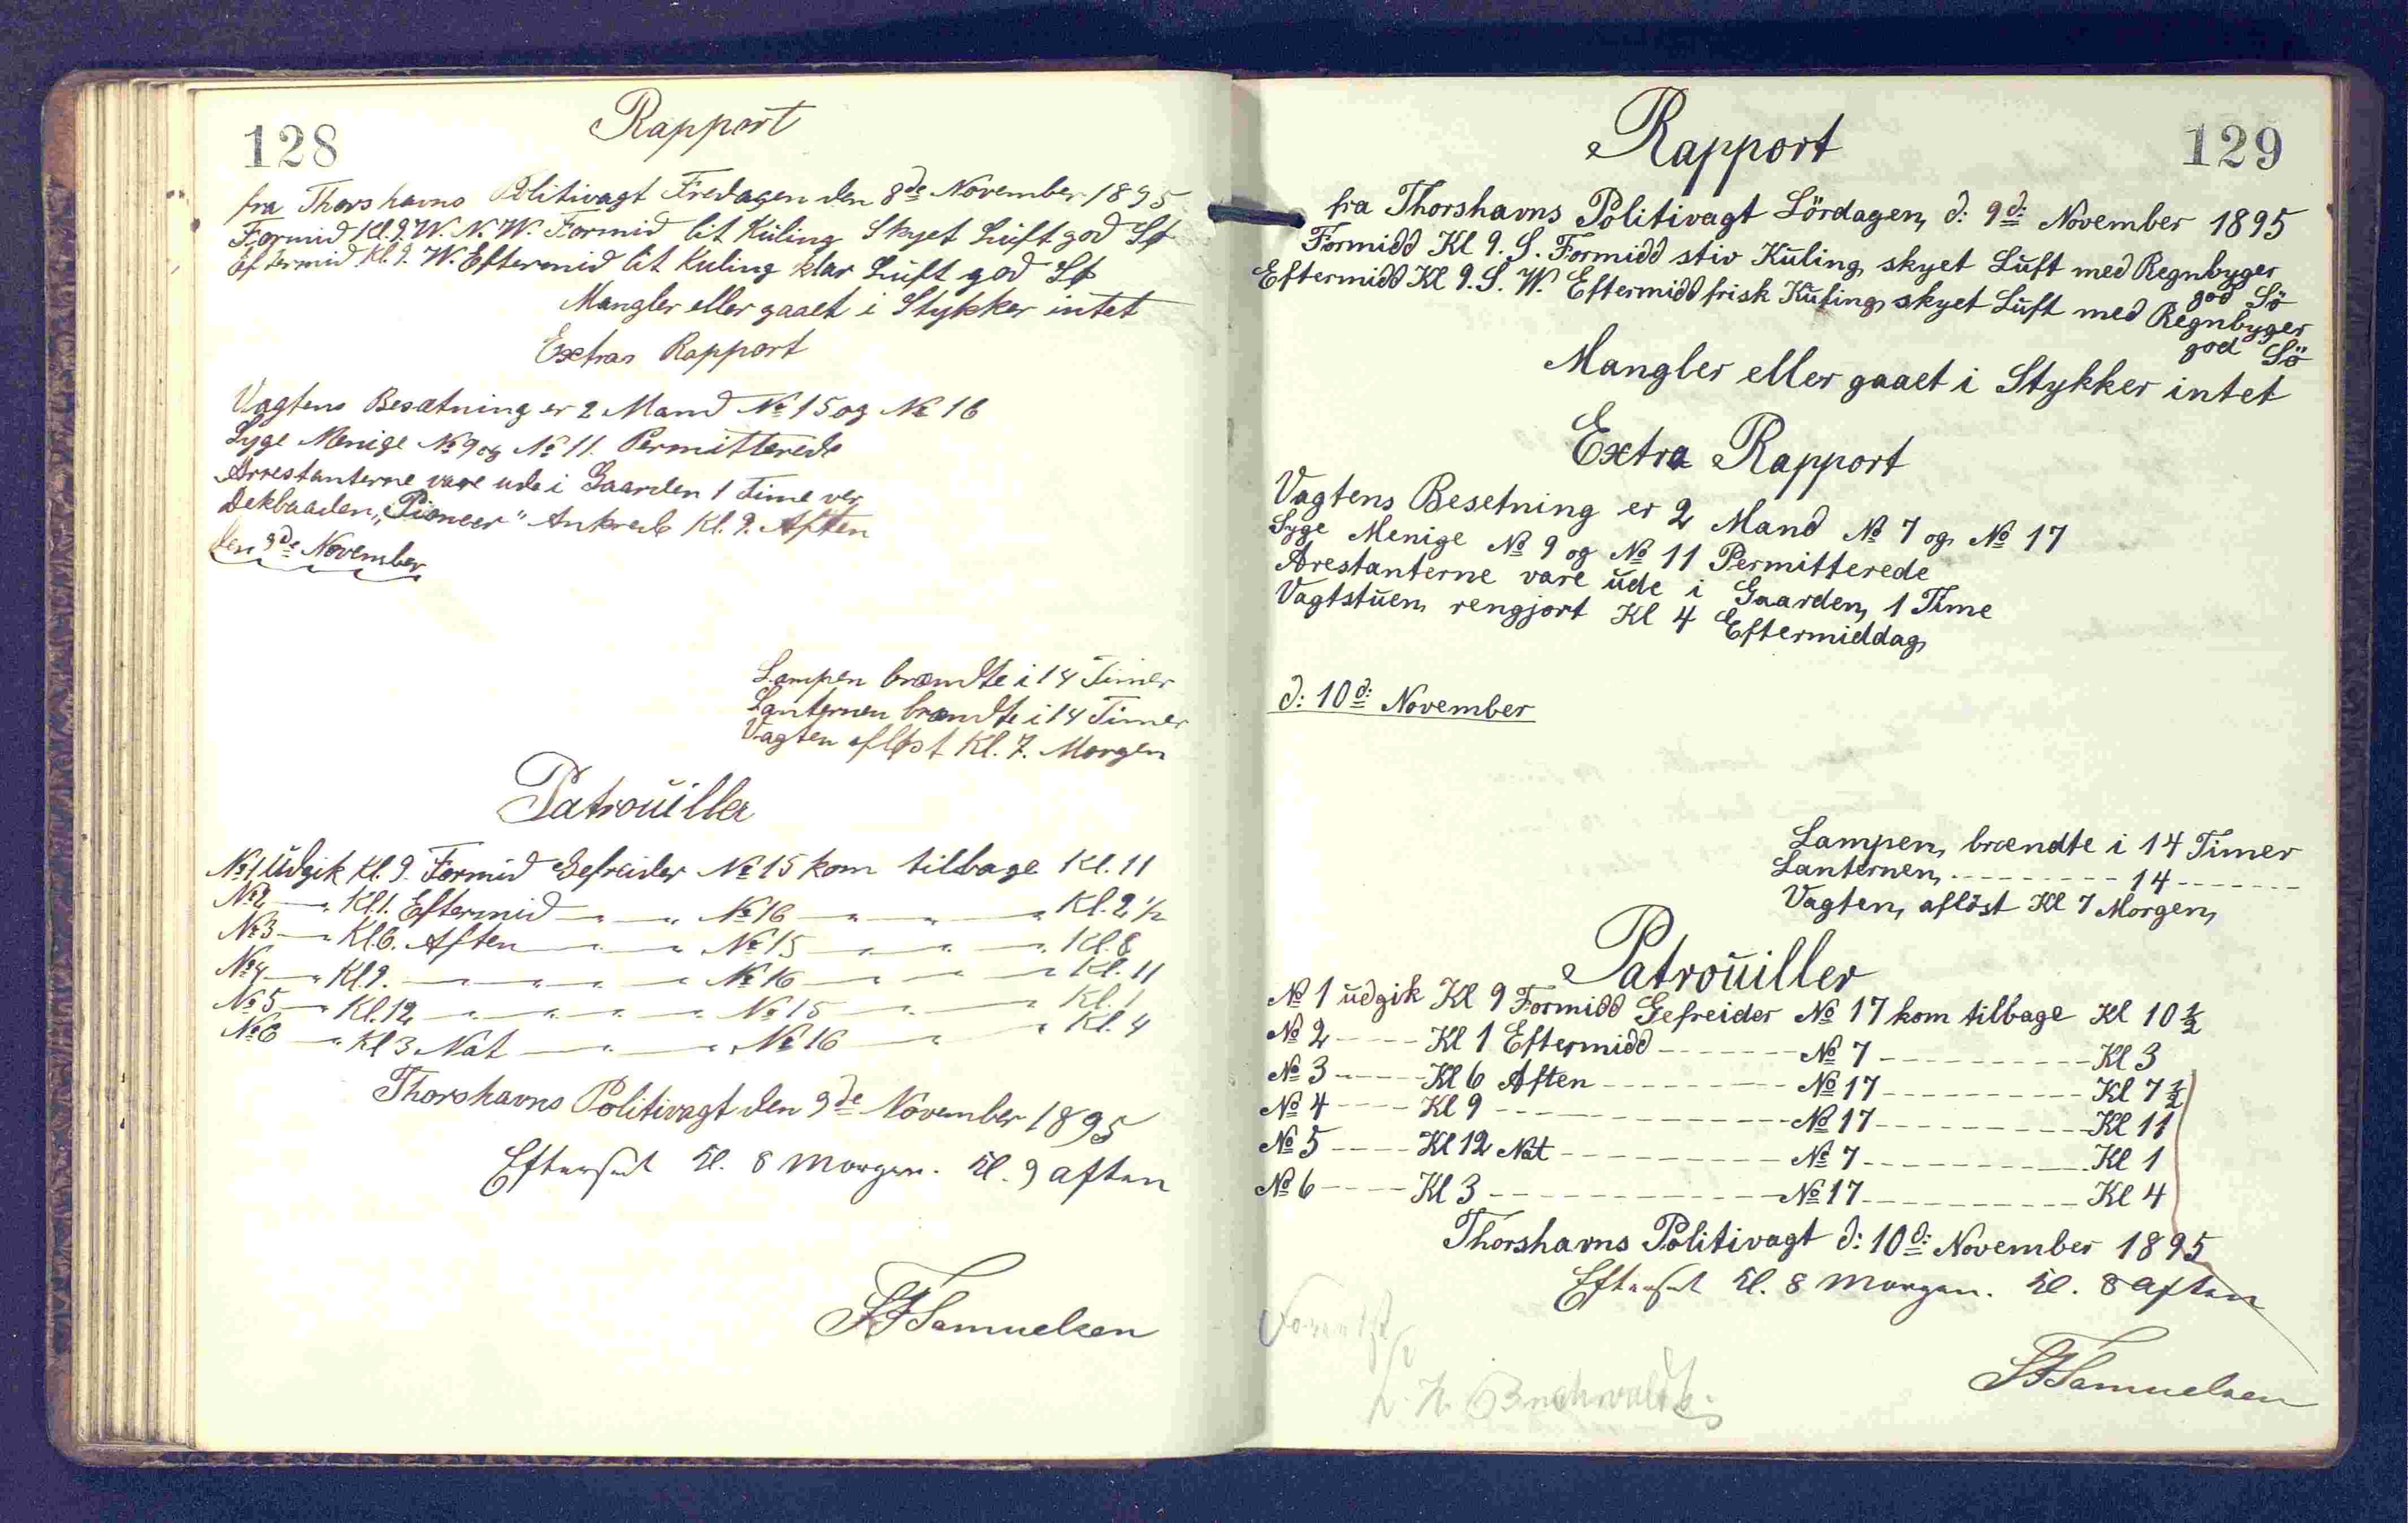 128
Rapport
fra Thorshavns Politivagt Fredagen den 8de November 1895
Formid Kl. 9. W. N. W. Formid lit Kuling Skyet Luft god Sø
Eftermid Kl. 9. W. Eftermid lit Kuling klar Luft god Sø
Mangler eller gaaet i Stykker intet
Extra Rapport
Vagtens Besætning er 2 Mand No 15 og No 16
Syge Menige No 9 og No 11. Permitterede
Arrestanterne vare ude i Gaarden 1 Time
Dekbaaden „Pioneer" Ankrede Kl. 9. Aften
den 9de November
Lampen brændte i 14 Timer
Lanternen brændte i 14 Timer
Vagten afløst Kl. 7. Morgen
Patrouiller
No 1 Udgik Kl. 9. Formid Gefreider No 15 kom tilbage Kl. 11
No 2 — „ Kl. 1. Eftermid — „ — „ No 16 — „ — „ — „ Kl. 2 1/2
No 3 — „ Kl. 6. Aften — „ — „ No 15 — „ — „ — „ Kl. 8
No 4 — „ Kl. 9. — „ — „ — „ No 16 — „ — „ — „ Kl. 11
No 5 — „ Kl. 12 — „ — „ — „ No 15 — „ — „ — „ Kl. 1
No 6 — „ Kl 3 Nat — „ — „ No 16 — „ — „ Kl. 4
Thorshavns Politivagt den 9de November 1895
Efterset Kl. 8 Morgen. Kl. 9 aften
Samuelsen
129
Rapport
fra Thorshavns Politivagt Lördagen, d: 9d: November 1895
Formidd Kl 9. S. Formidd stiv Kuling, skyet Luft med Regnbyger
god Sö
Eftermidd Kl 9. S. W. Eftermidd frisk Kuling, skyet Luft med Regnbyger
god Sö
Mangler eller gaaet i Stykker intet
Extra Rapport
Vagtens Besetning er 2 Mand No 7 og No 17
Syge Menige No 9 og No 11 Permitterede
Arestanterne vare ude i Gaarden, 1 Time
Vagtstuen rengjort Kl 4 Eftermiddag
d: 10d: November
Lampen, brændte i 14 Timer
Lanternen, ---------- 14 -------
Vagten, aflöst Kl 7 Morgen,
Patrouiller
No 1 udgik Kl 9 Formidd Gefreider No 17 kom tilbage Kl 10 1/2
No 2 ----- Kl 1 Eftermidd ------- No 7 ----------- Kl 3
No 3 ----- Kl 6 Aften --------- No 17 ---------- Kl 7 1/2
No 4 ---- Kl 9 -------------- No 17 ---------- Kl 11
No 5 ---- Kl 12 Nat ---------- No 7 ---------- Kl 1
No 6 ---- Kl 3 -------------- No 17 ---------- Kl 4
Thorshavns Politivagt d: 10d: November 1895
Efterset Kl. 8 Morgen. Kl. 8 aften
Samuelsen